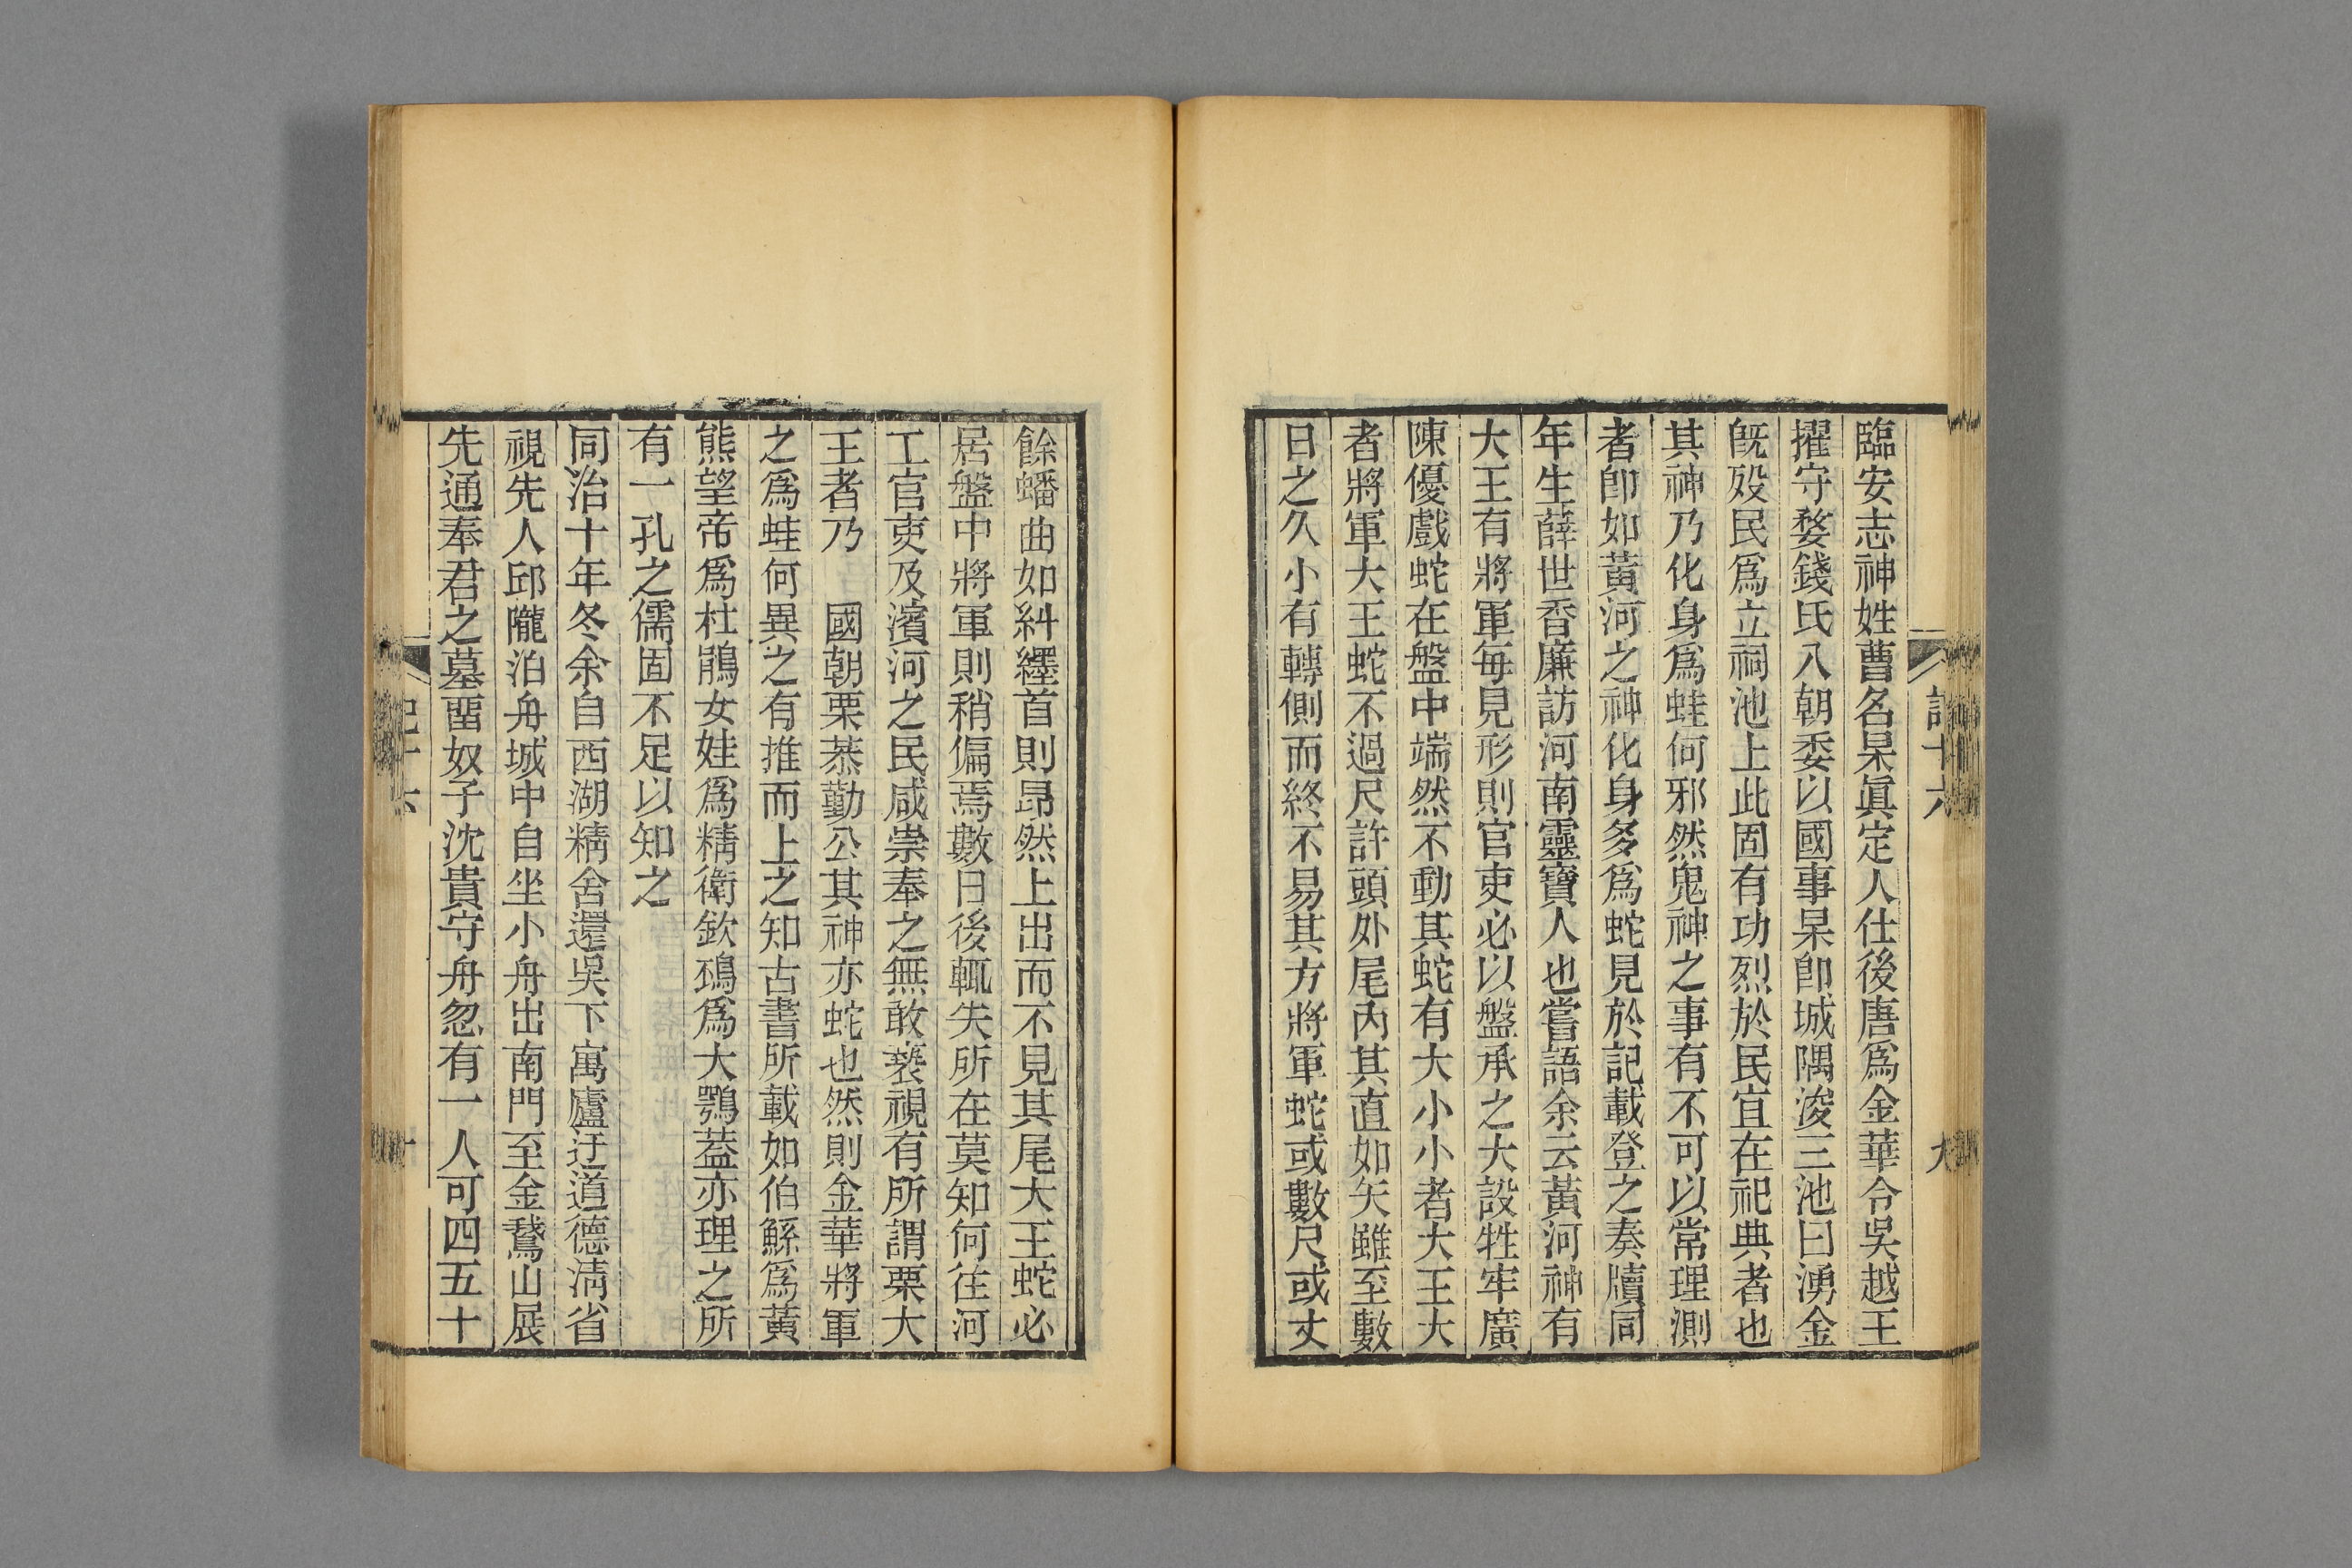 臨安志神姓曹名杲眞定人仕後唐爲金華令吳越王
擢守婺錢氏入朝委以國事杲卽城隅浚三池曰湧金
旣歿民爲立祠池上此固有功烈於民宜在祀典者也
其神乃化身爲蛙何邪然鬼神之事有不可以常理測
者卽如黃河之神化身多爲蛇見於記載登之奏牘同
年生薛世香廉訪河南靈寶人也嘗語余云黃河神有
大王有將軍每見形則官吏必以盤承之大設牲牢廣
陳優戲蛇在盤中端然不動其蛇有大小小者大王大
者將軍大王蛇不過尺許頭外尾內其直如矢雖至數
日之久小有轉側而終不易其方將軍蛇或數尺或丈
餘蟠曲如糾纆首則昂然上出而不見其尾大王蛇必
居盤中將軍則稍偏焉數日後輒失所在莫知何往河
工官吏及濱河之民咸崇奉之無敢褻視有所謂栗大
王者乃　國朝栗恭勤公其神亦蛇也然則金華將軍
之爲蛙何異之有推而上之知古書所載如伯鯀爲黃
熊望帝爲杜鵑女娃爲精衛欽䲹爲大鶚蓋亦理之所
有一孔之儒固不足以知之
同治十年冬余自西湖精舍還吳下寓廬迂道德淸省
視先人邱隴泊舟城中自坐小舟出南門至金鵞山展
先通奉君之墓畱奴子沈貴守舟忽有一人可四五十